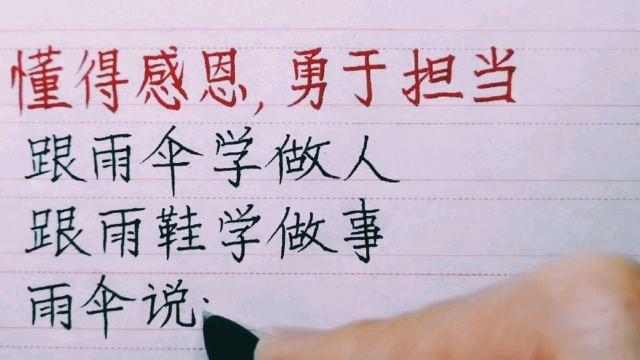 懂得感恩,勇于担当
跟雨伞学做人
跟雨鞋学做事
雨伞说: